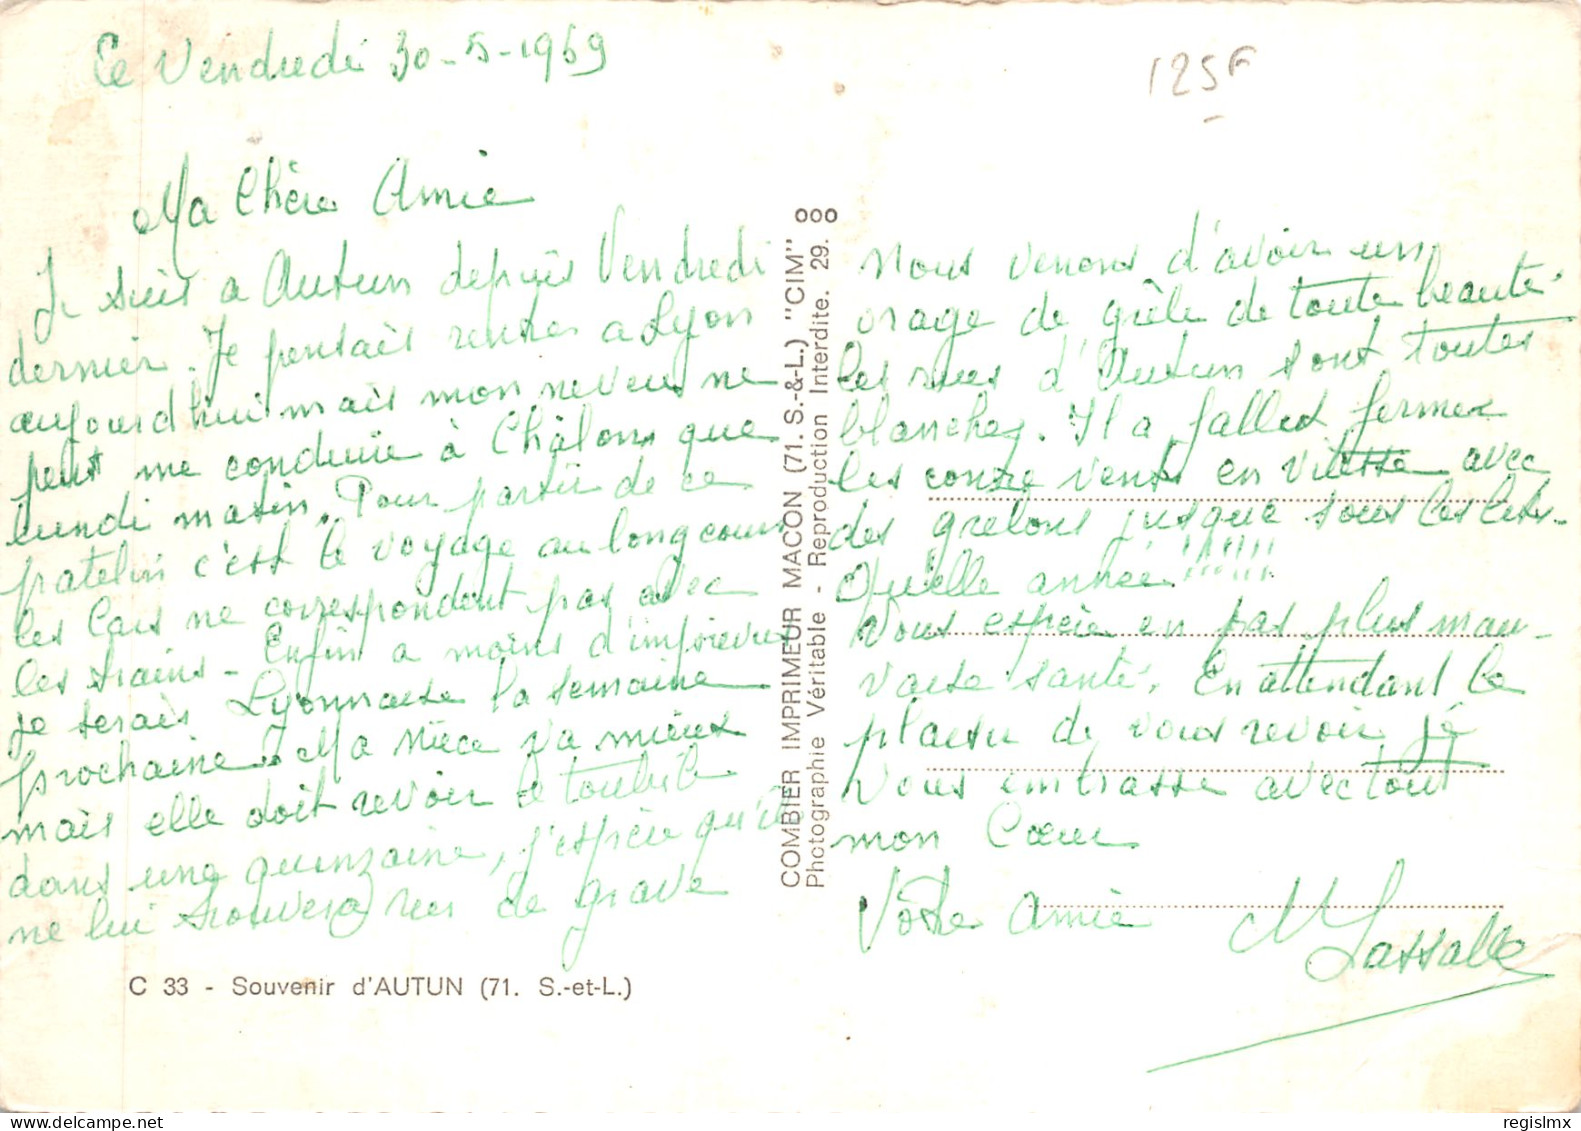 Le Vendredi 30-5-1969
125F
Ma Chère Amie
Je suis a Autun depuis Vendredi
dernier. Je pensais rentrer a Lyon
aujourd'hui mais mon neveu ne
peut me conduire à Châlons que
lundi matin. Pour partir de ce
patelin c'est le voyage au long cours
les Cars ne correspondent pas avec
les trains - Enfin a moins d'imprévus
je serais Lyonnaise la semaine
prochaine. Ma Nièce va mieux
mais elle doit revoir le toubib
dans une quinzaine, j'espère qu'il
ne lui trouvera rien de grave
C 33 - Souvenir d'AUTUN (71. S.-et-L.)
COMBIER IMPRIMEUR MACON (71. S.-&-L.) "CIM" ooo
Photographie Véritable - Reproduction Interdite. 29.
Nous venons d'avoir un
orage de grêle de toute beauté.
les rues d'Autun sont toutes
blanches. Il a fallut fermer
les contre vents en vitesse avec
des grêlons jusque sous les lits.
Quelle année!!!!!!
Vous espère en pas plus mau-
vaise santé. En attendant le
plaisir de vous revoir je
Vous embrasse avec tout
mon Cœur
Vôtre Amie M Lassalle
regislmx